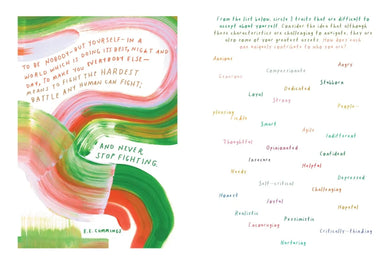 TO BE NOBODY-BUT YOURSELF-IN A
WORLD WHICH IS DOING ITS BEST, NIGHT AND
DAY, TO MAKE YOU EVERYBODY ELSE-
MEANS TO FIGHT THE HARDEST
BATTLE ANY HUMAN CAN FIGHT;
AND NEVER
STOP FIGHTING.
E.E. CUMMINGS
From the list below, circle 3 traits that are difficult to
accept about yourself. Consider the idea that although
these characteristics are challenging to navigate, they are
also some of your greatest assets. How does each
one uniquely contribute to who you are?
Anxious
Angry
Compassionate
Generous
Stubborn
Dedicated
Loyal
Strong
People-
pleasing
Smart
Agile
Indifferent
Thoughtful
Opinionated
Confident
Insecure
Helpful
Needy
Depressed
Self-critical
Challenging
Honest
Joyful
Hopeful
Realistic
Pessimistic
Encouraging
Critically-thinking
Nurturing